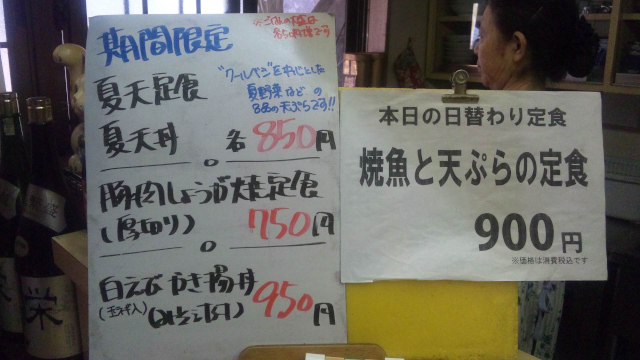 期間限定
夏天定食
"クールベジ"を中心とした
夏野菜などの
8品の天ぷらです!!
夏天丼 各850円
豚肉しょうが焼定食
(厚切り) 750円
白えびかき揚丼
(玉ネギ入) 950円
本日の日替わり定食
焼魚と天ぷらの定食
900円
※価格は消費税込です
栄